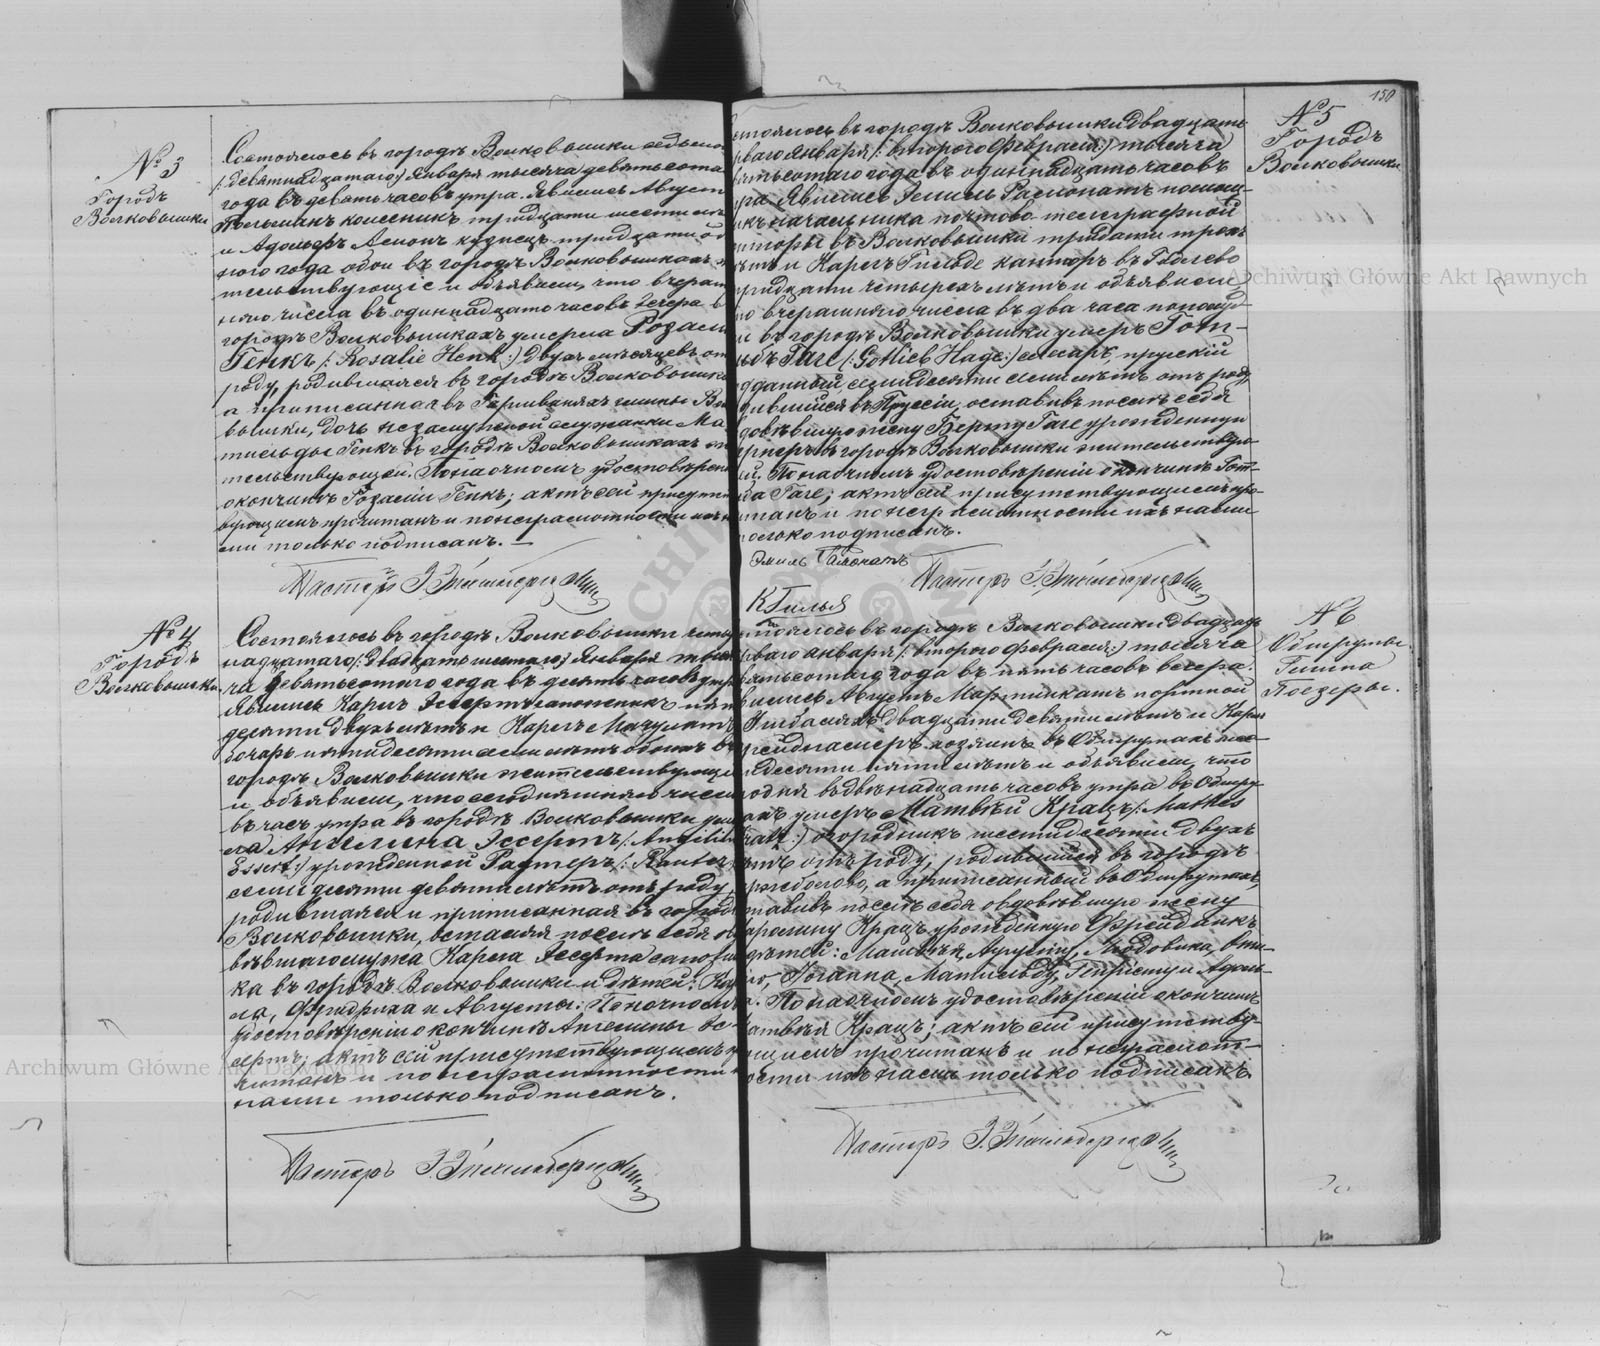 № 3
Городъ
Волковышки
Состоялось въ городѣ Волковышки седьмо
/: девятнадцатаго :/ Января тысяча девятьсота
года въ девять часовъ утра. Явились Август
колесникъ тридцати шести лѣ
и Адольфъ кузнецъ тридцати од
ного года обои въ городѣ Волковышкахъ ж
тельствующіе и объявили, что вчераш
няго числа въ одиннадцать часовъ вечера в
городѣ Волковышкахъ умерла Розал
Генкъ /: Rosalie Henk :/ двухъ мѣсяцевъ от
роду, родившаяся въ городѣ Волковышк
а приписанная въ гмины Вол
вышки, дочь незамужной служанки Ма
тильды Генкъ въ городѣ Волковышкахъ жи
тельствующей. По наочномъ удостовѣрен
окончинѣ Розаліи Генкъ; актъ сей присутст
вующимъ прочитанъ и по неграмотности ихъ н
ми только подписанъ. —
Пасторъ
№ 4
Городъ
Волковышки
Состоялось въ городѣ Волковышки четыр
надцатаго /: двадцать шестаго :/ Января тыся
ча девятьсотаго года въ десять часовъ утр
Явились Карлъ Эссертъ сапожникъ пяти
десяти двухъ лѣтъ и Карлъ
бочаръ пятидесяти семи лѣтъ обоихъ въ
городѣ Волковышки жительствующі
и объявили, что сегодняшняго числа
въ часъ утра въ городѣ Волковышки уме
ла Ангелина Эссертъ /: Angelin
Essert :/ урожденной Раутеръ /: Rauter
семидесяти девяти лѣтъ отъ роду,
родившаяся и приписанная въ городѣ
Волковышки, оставляя послѣ себя ов
вѣвшаго мужа Карла Эссерта сапожни
ка въ городѣ Волковышки и дѣтей: Кар
ла, Фридриха и Августы. По наочномъ
удостовѣреніи о кончинѣ Ангелины Эс-
сертъ; актъ сей присутствующимъ п
читанъ и по неграмотности и
нами только подписанъ.
Пасторъ
150
№ 5
Городъ
Волковышки
стоялось въ городѣ Волковышки двадцать
рваго Января /: втораго Февраля :/ тысяча
вятьсотаго года въ одинадцать часовъ
ра. Явились Эмиль помощ-
икъ начальника почтово-телеграфной
нторы въ Волковышки тридцати трехъ
ѣтъ и Карлъ Гильде канторъ въ
ридцати четырехъ лѣтъ и объявили,
то вчерашняго числа въ два часа пополуд-
и въ городѣ Волковышки умеръ Гот-
ибъ Гаге /: Gotlieb Hage :/ прусскій
дданный, семидесяти семи лѣтъ отъ роду,
дившійся въ Пруссіи, оставивъ послѣ себя
довѣвшую жену Берту Гаге урожденную
въ городѣ Волковышки жительствую
ей. По наочномъ удостовѣреніи о кончинѣ Гот-
иба Гаге; актъ сей присутствующимъ про-
читанъ и по неграмотности ихъ нами
олько подписанъ.
Эмиль
К Гильде
Пасторъ
№ 6
Обшруты.
Гмина
Поезеры.
стоялось въ городѣ Волковышки двадцать
рваго Января /: втораго Февраля :/ тысяча
вятьсотаго года въ пять часовъ вечера.
вились Августъ портной
двадцати девяти лѣтъ и Карлъ
хозяинъ въ Обшрутахъ
десяти пяти лѣтъ и объявили, что
одня въ двѣнадцать часовъ утра въ Обшру
ахъ умеръ Матвѣй Крацъ /: Mathes
ratz :/ огородникъ шестидесяти двухъ
ѣтъ отъ роду, родившійся въ городѣ
а приписанный въ Обшрутахъ,
тавивъ послѣ себя овдовѣвшую жену
аролину Крацъ урожденную
дѣтей: Матвѣя, Августу, Людовика,
Іоганна, Матильду, Генріету и Адоль-
а. По наочномъ удостовѣреніи о кончинѣ
атвѣя Крацъ; актъ сей присутству-
щимъ прочитанъ и по неграмот-
ости ихъ нами только подписанъ.
Пасторъ
Archiwum Główne Akt Dawnych
Archiwum Główne Akt Dawnych